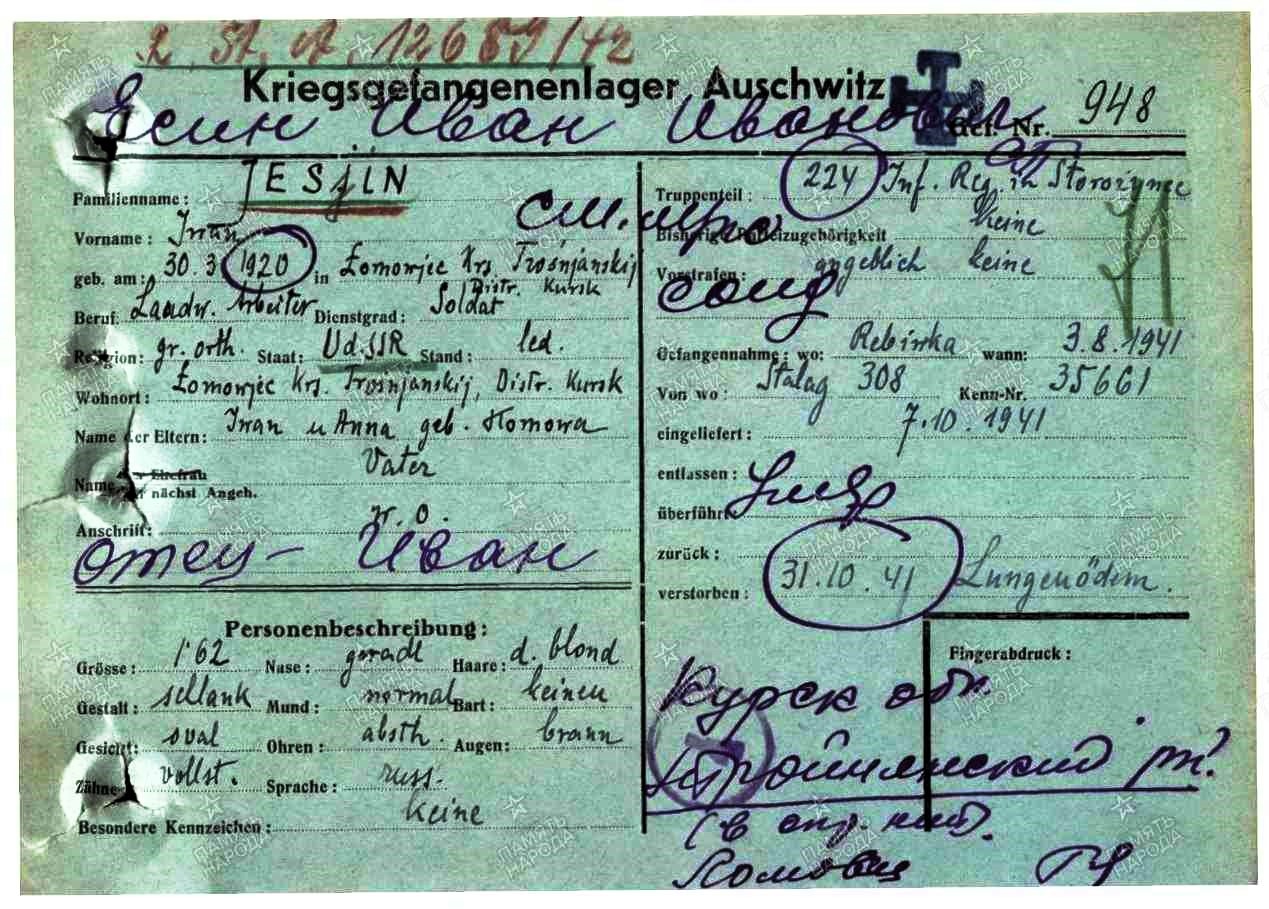 2. St. A. 12689/42
Kriegsgefangenenlager Auschwitz
Есин Иван Иванович Gef. Nr. 948
Familienname: JESjIN
Vorname: Iwan
geb. am: 30.3 1920 in Łomowjec Krs Trosnjanskij
Distr. Kursk
Beruf: Landw. Arbeiter Dienstgrad: Soldat
Religion: gr. orth. Staat: UdSSR Stand: led.
Wohnort: Łomowjec Krs. Trosnjanskij, Distr. Kursk
Name der Eltern: Iwan u Anna geb. Homowa
Name der Ehefrau Vater
oder nächst Angeh.
Anschrift: w. o.
отец - Иван
Personenbeschreibung:
Grösse: 1'62 Nase: gerade Haare: d. blond
Gestalt: schlank Mund: normal Bart: keinen
Gesicht: oval Ohren: absth. Augen: braun
Zähne: vollst. Sprache: russ.
Besondere Kennzeichen: keine
Truppenteil: 224 Inf. Reg. in Storożynec
Bisherige Parteizugehörigkeit keine
Vorstrafen: angeblich keine
солд
Gefangennahme: wo: Rebinka wann: 3.8.1941
Von wo: Stalag 308 Kenn-Nr. 35661
eingeliefert: 7.10.1941
entlassen:
überführt:
умер
zurück:
verstorben: 31.10.41 Lungenödem.
Fingerabduck:
Курск обл.
(в
Ломовец
ПАМЯТЬ НАРОДА